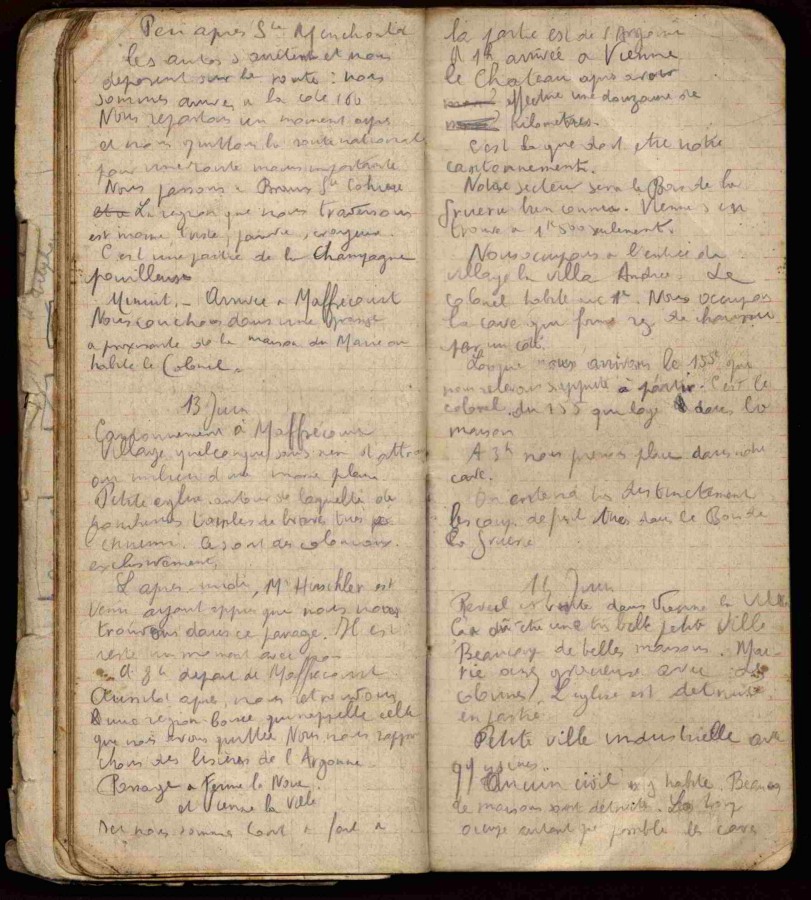 Peu apres Ste Menehould
les autos s'arretent et nous
deposent sur la route : nous
sommes arrives a la cote 180
Nous repartons un moment apres
et nous quittons la route nationale
pour une route moins importante
Nous passons a Braux Ste Cohiere
La region que nous traversons
est morne triste, pauvre, crayeuse.
C'est une partie de la Champagne
pouilleuse
Minuit. - Arrivee a Maffrecourt
Nous couchons dans une grange
a proximite de la maison du Maire ou
habite le Colonel.
13 Juin
Cantonnement à Maffrecourt
Village quelconque sans rien d'attra
au milieu d'une morne plaine
Petite eglise autour de laquelle de
tombes de braves tues
ennemi. Ce sont des coloniaux
exclusivement.
L'apres-midi, Mr Hirschler est
venu ayant appris que nous nous
trouvions dans ce parage. Il est
reste un moment avec
A 8h depart de Maffrecourt
Aussitot apres, nous retrouvons
une region boisee qui rappelle celle
que nous avons quittee Nous nous rappro
chons des lisières de l'Argonne
Passage a Ferme la Noue
et Vienne la Ville
nous sommes tout a fait a
la partie est de l'Argonne
A 1h arrivée a Vienne
le Chateau apres avoir
effectue une douzaine de
kilometres.
C'est la que doit etre notre
cantonnement.
Notre secteur sera le Bois de la
Gruerie bien connu. Vienne s en
trouve a 1k500 seulement.
Nous occupons a l'entrée du
village la villa Andree. Le
Colonel habite au 1er. Nous occupons
la cave qui forme rez de chaussee
par un coté.
Lorsque nous arrivons le 155e que
nous relevons s'apprete à partir. C'est le
colonel du 155 qui loge dans la
maison
A 3h nous prenons place dans notre
cave.
On entend tres distinctement
les coups de fusil tires dans le Bois de
la Gruerie
14 Juin
Reveil et visite dans Vienne la Ville
Ca a dû etre une tres belle petite ville
Beaucoup de belles maisons. Mai-
rie assez gracieuse avec des
colonnes. L'eglise est detruite
en partie
Petite ville industrielle avec
qq usines..
Aucun civil n'y habite. Beaucoup
de maisons sont detruites. La troupe
occupe autant que possible les caves